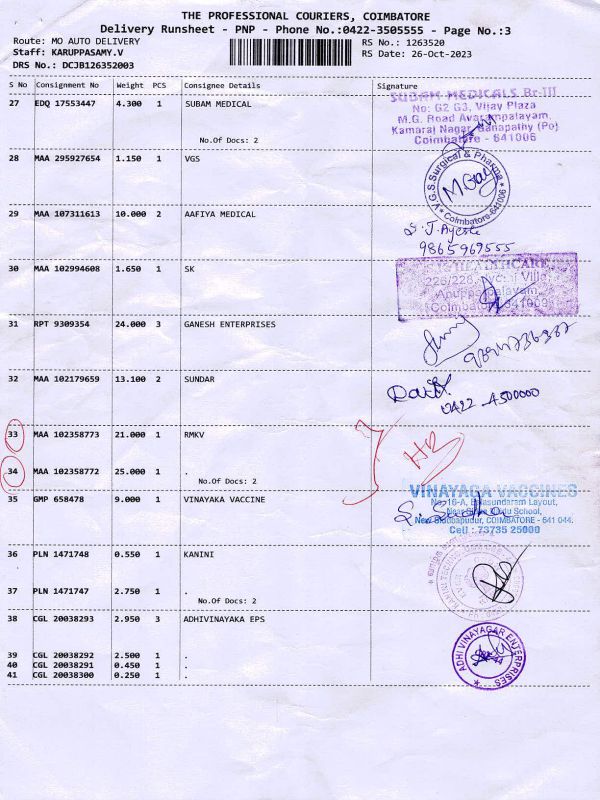 THE PROFESSIONAL COURIERS, COIMBATORE
Delivery Runsheet - PNP - Phone No.:0422-3505555 - Page No.:3
Route: MO AUTO DELIVERY RS No.: 1263520
Staff: KARUPPASAMY.V RS Date: 26-Oct-2023
DRS No.: DCJB126352003
S No Consignment No Weight PCS Consignee Details Signature
27 EDQ 17553447 4.300 1 SUBAM MEDICAL
No.Of Docs: 2
SUBAM MEDICALS Br-III
No: G2 G3, Vijay Plaza
M.G. Road Avarampalayam,
Kamaraj Nagar, Ganapathy (Po)
Coimbatore - 641006
28 MAA 295927654 1.150 1 VGS
V.G.S Surgical & Pharma
Coimbatore-641006
29 MAA 107311613 10.000 2 AAFIYA MEDICAL
9865969555
30 MAA 102994608 1.650 1 SK
HEALTHCARE
Coimbatore
31 RPT 9309354 24.000 3 GANESH ENTERPRISES
32 MAA 102179659 13.100 2 SUNDAR
0422 4500000
33 MAA 102358773 21.000 1 RMKV
34 MAA 102358772 25.000 1 .
No.Of Docs: 2
35 GMP 658478 9.000 1 VINAYAKA VACCINE
VINAYAGA VACCINES
No:16-A, Balasundaram Layout,
New Siddhapudur, COIMBATORE - 641 044.
Cell : 73735 25000
36 PLN 1471748 0.550 1 KANINI
37 PLN 1471747 2.750 1 .
No.Of Docs: 2
38 CGL 20038293 2.950 3 ADHIVINAYAKA EPS
39 CGL 20038292 2.500 1 .
40 CGL 20038291 0.450 1 .
41 CGL 20038300 0.250 1 .
ADHI VINAYAGAR ENTERPRISES